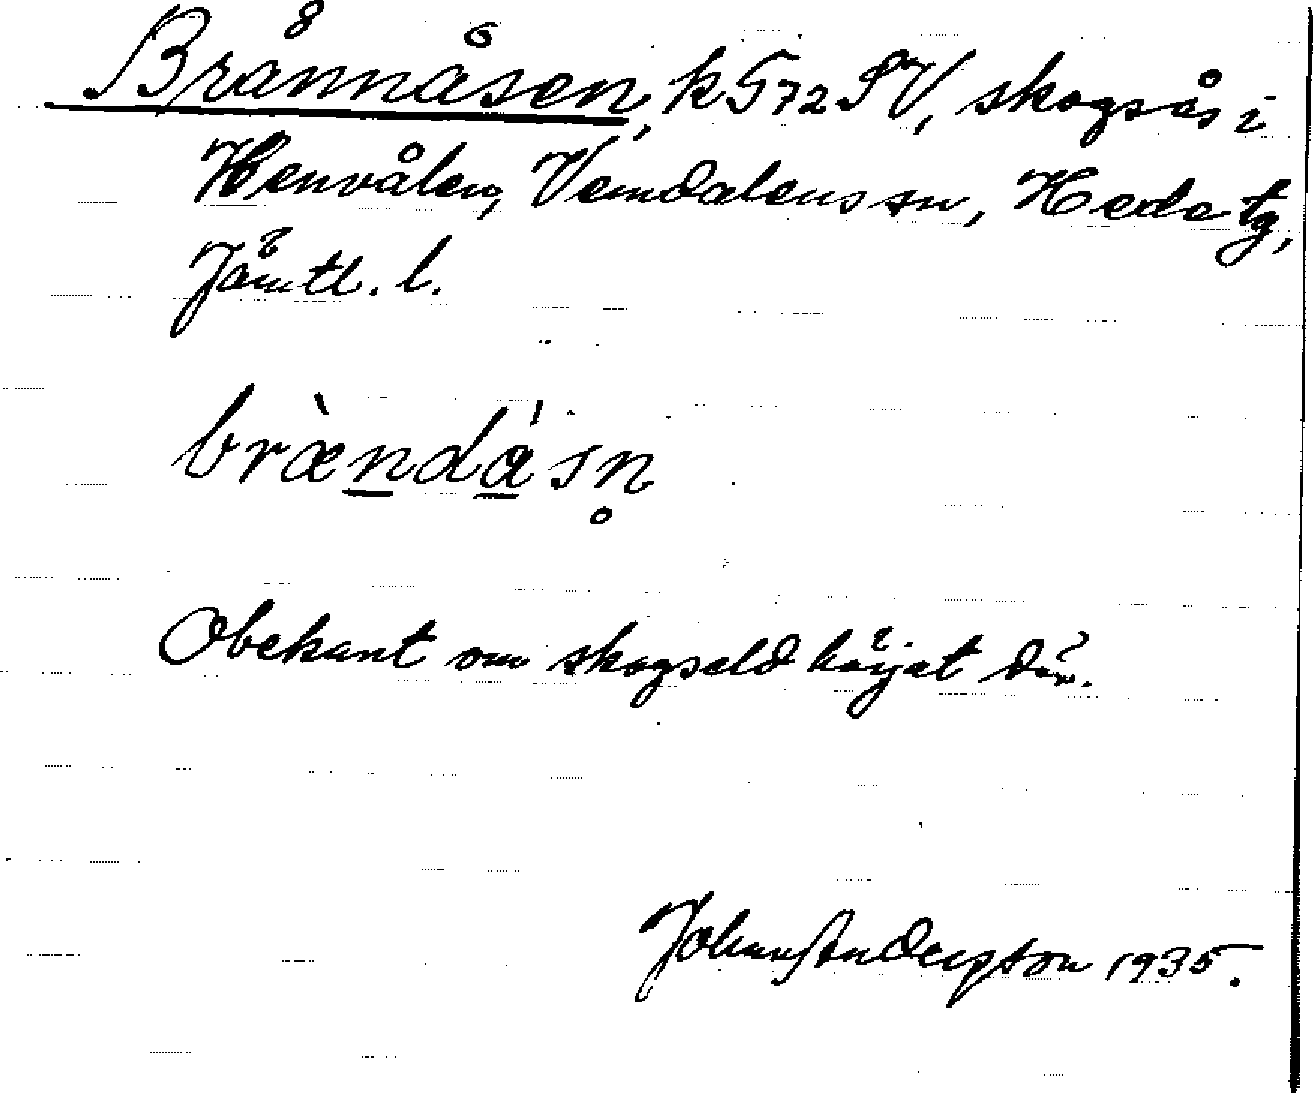 Brännåsen, k G72 SV, skogsås i
Henvålen, Vemdalens sn, Hede tg,
Jämtl. l.
brænda̱sn̥
Obekant om skogseld härjat där.
Johan Anderson 1935.